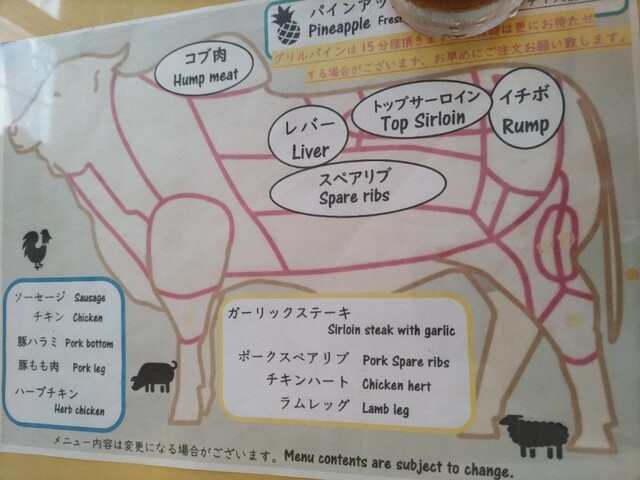 パインアッ
Pineapple Fres
グリルパインは15分程頂きま
は更にお待たせ
する場合がございます、お早めにご注文お願い致します。
コブ肉
Hump meat
トップサーロイン
Top Sirloin
イチボ
Rump
レバー
Liver
スペアリブ
Spare ribs
ソーセージ Sausage
チキン Chicken
豚ハラミ Pork bottom
豚もも肉 Pork leg
ハーブチキン
Herb chicken
ガーリックステーキ
Sirloin steak with garlic
ポークスペアリブ Pork Spare ribs
チキンハート Chicken hert
ラムレッグ Lamb leg
メニュー内容は変更になる場合がございます。Menu contents are subject to change.